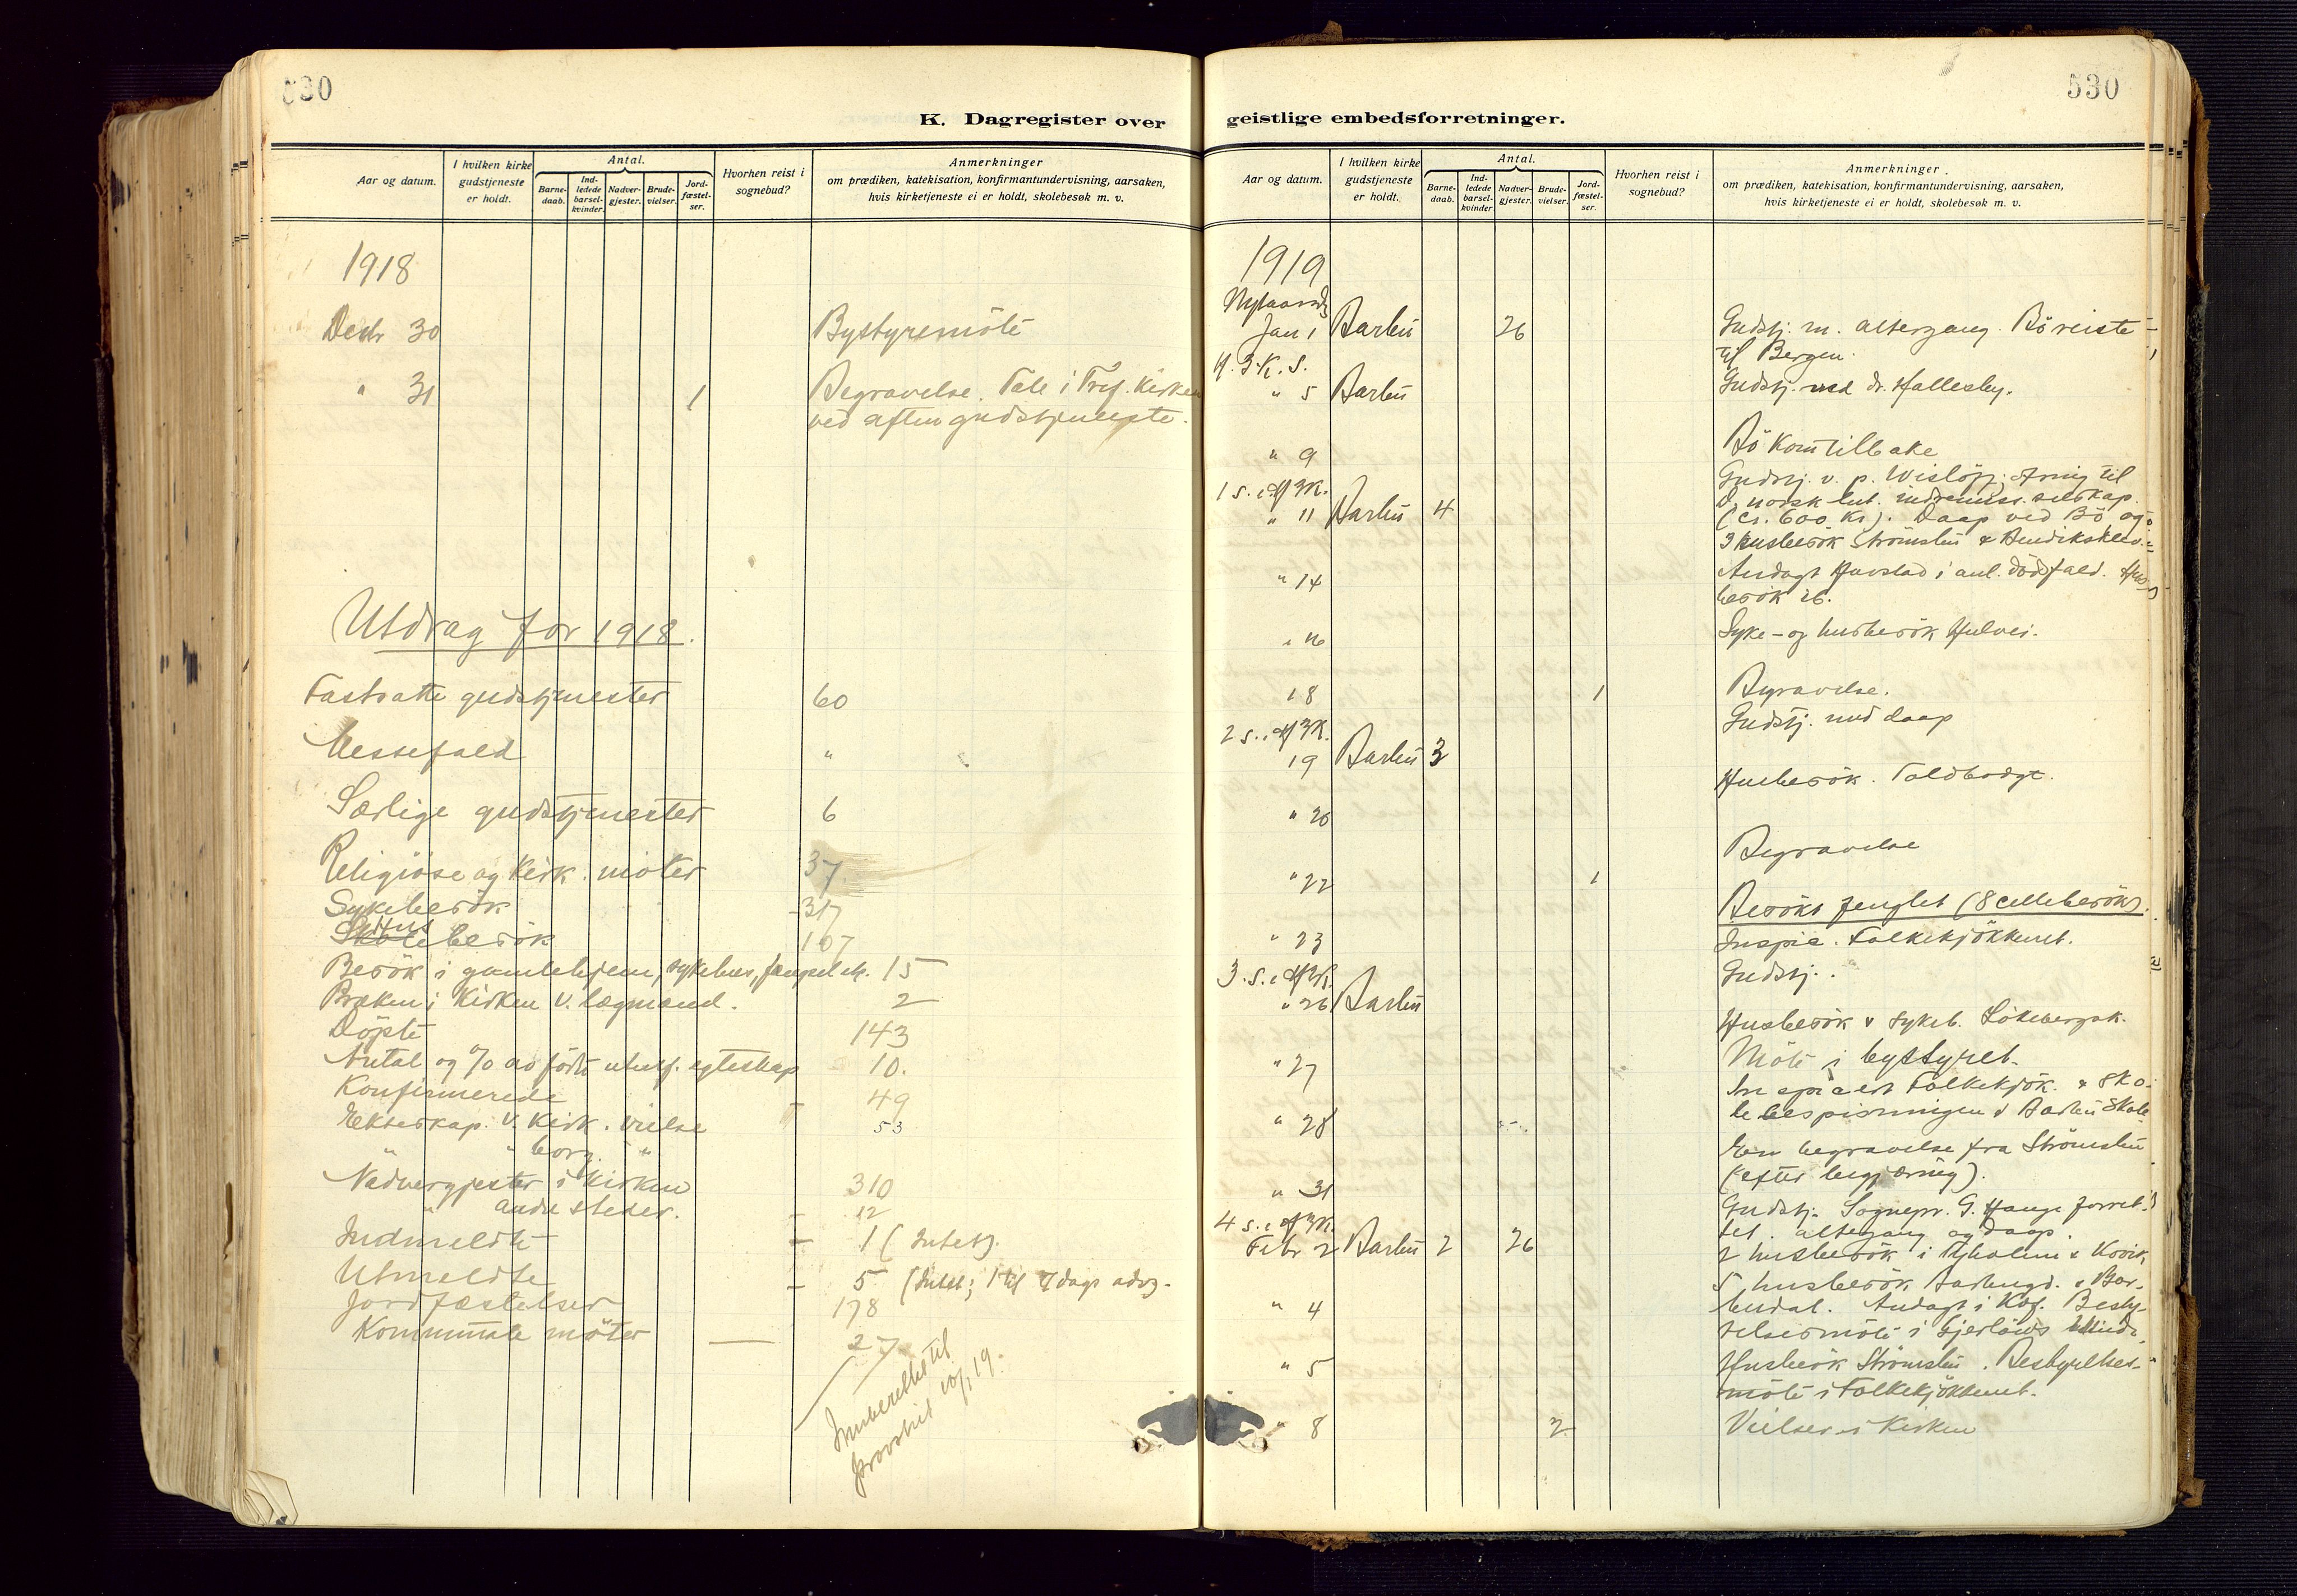 530
K. Dagregister over
Aar og datum.
I hvilken kirke gudstjeneste er holdt.
Antal.
Barne-daab.
Ind-ledede barsel-kvinder.
Nadver-gjester.
Brude-vielser.
Jord-fæstel-ser.
Hvorhen reist i sognebud?
Anmerkninger
om prædiken, katekisation, konfirmantundervisning, aarsaken,
hvis kirketjeneste ei er holdt, skolebesøk m. v.
1918
Decbr 30 Bystyremöte
" 31 1 Begravelse. Tale i Tref. Kirken
ved aftengudstjeneste.
Utdrag for 1918.
Fastsatte gudstjenester 60
Messefald "
Særlige gudstjenester 6
Religiöse og Kirk. möter 37
Sykebesök 317
Husbesök 167
Besök i gamlehjem, sykehus, fængsel etc. 15
Præken i Kirken v. lægmænd. 2
Döpte 143
Antal og % av födte utenf. egteskap 10.
Konfirmerede 49
Ekteskap v. Kirk. vielse 53
" " borg. "
Nadvergjester i Kirken 310
" andre steder. 12
Indmeldte 1
Utmeldte 5 (Intet; 1 til 7 dags adv.
Jordfæstelser 178
Kommunale möter 27
Innberettet til
provstiet 10/1 19.
530
geistlige embedsforretninger.
Aar og datum.
I hvilken kirke gudstjeneste er holdt.
Antal.
Barne-daab.
Ind-ledede barsel-kvinder
Nadver-gjester.
Brude-vielser.
Jord-fæstel-ser.
Hvorhen reist i sognebud?
Anmerkninger.
om prædiken, katekisation, konfirmantundervisning, aarsaken,
hvis kirketjeneste ei er holdt, skolebesøk m. v.
1919
Nytaarsd.
Jan 1 Barbu 26 Gudstj. m. altergang. Bö reiste
til Bergen.
" 5 Barbu Gudstj. ved dr. Hallesby.
" 9 Bö kom tilbake
1 s. e. H3K. Gudstj. v. p. Wislöff. Ofring til
" 11 Barbu 4 D. norsk lut. indremiss. selskap.
(ca. 600 Kr). Daap ved Bö og
3 husbesök Strömsbu & Bendiksklev.
" 14 Andagt Havstad i anl. dödsfald. Hus-
besök 26.
" 16 Syke- og husbesök Hulvei.
18 1 Begravelse.
2 s. e. H3K. Gudstj. med daap
19 Barbu 3
" 20 Husbesök. Toldbodgt.
" 22 1 Begravelse
Besökt fenglet (8 cellebesök).
" 23 Inspic. Folkekjökkenet.
3. s. e. H3K. Gudstj.
" 26 Barbu
" 27 Husbesök & sykeb. Lökebergsk.
Möte i bystyret.
" 28 Inspicert Folkekjök. & sko-
lebespisningen v Barbu Skole
" 31 En begravelse fra Strömsbu
(efter begjæring).
4 s. e. H3K. Gudstj. Sognepr. G. Hauge forret-
Febr 2 Barbu 2 26 tet. altergang og daap.
2 husbesök i Tyholmen & Kovik
" 4 5 husbesök Barbugd. & Bar-
budal. Andagt i Kof. Besty-
relsesmöte i Gjerlöws Minde.
" 5 Husbesök Strömsbu. Bestyrelses-
möte i Folkekjökkenet.
" 8 2 Vielser i Kirken